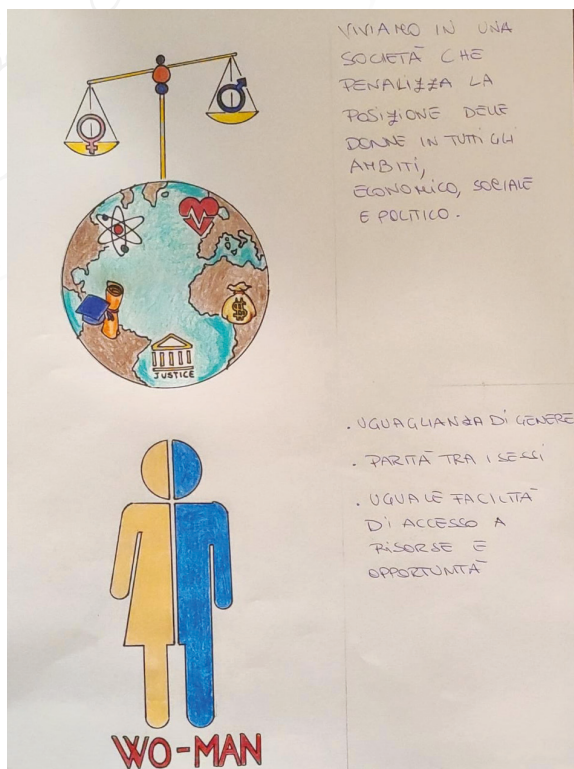 VIVIAMO IN UNA
SOCIETÀ CHE
PENALIZZA LA
POSIZIONE DELLE
DONNE IN TUTTI GLI
AMBITI,
ECONOMICO, SOCIALE
E POLITICO.
$
JUSTICE
. UGUAGLIANZA DI GENERE
. PARITÀ TRA I SESSI
. UGUALE FACILITÀ
DI ACCESSO A
RISORSE E
OPPORTUNITÀ
WO-MAN